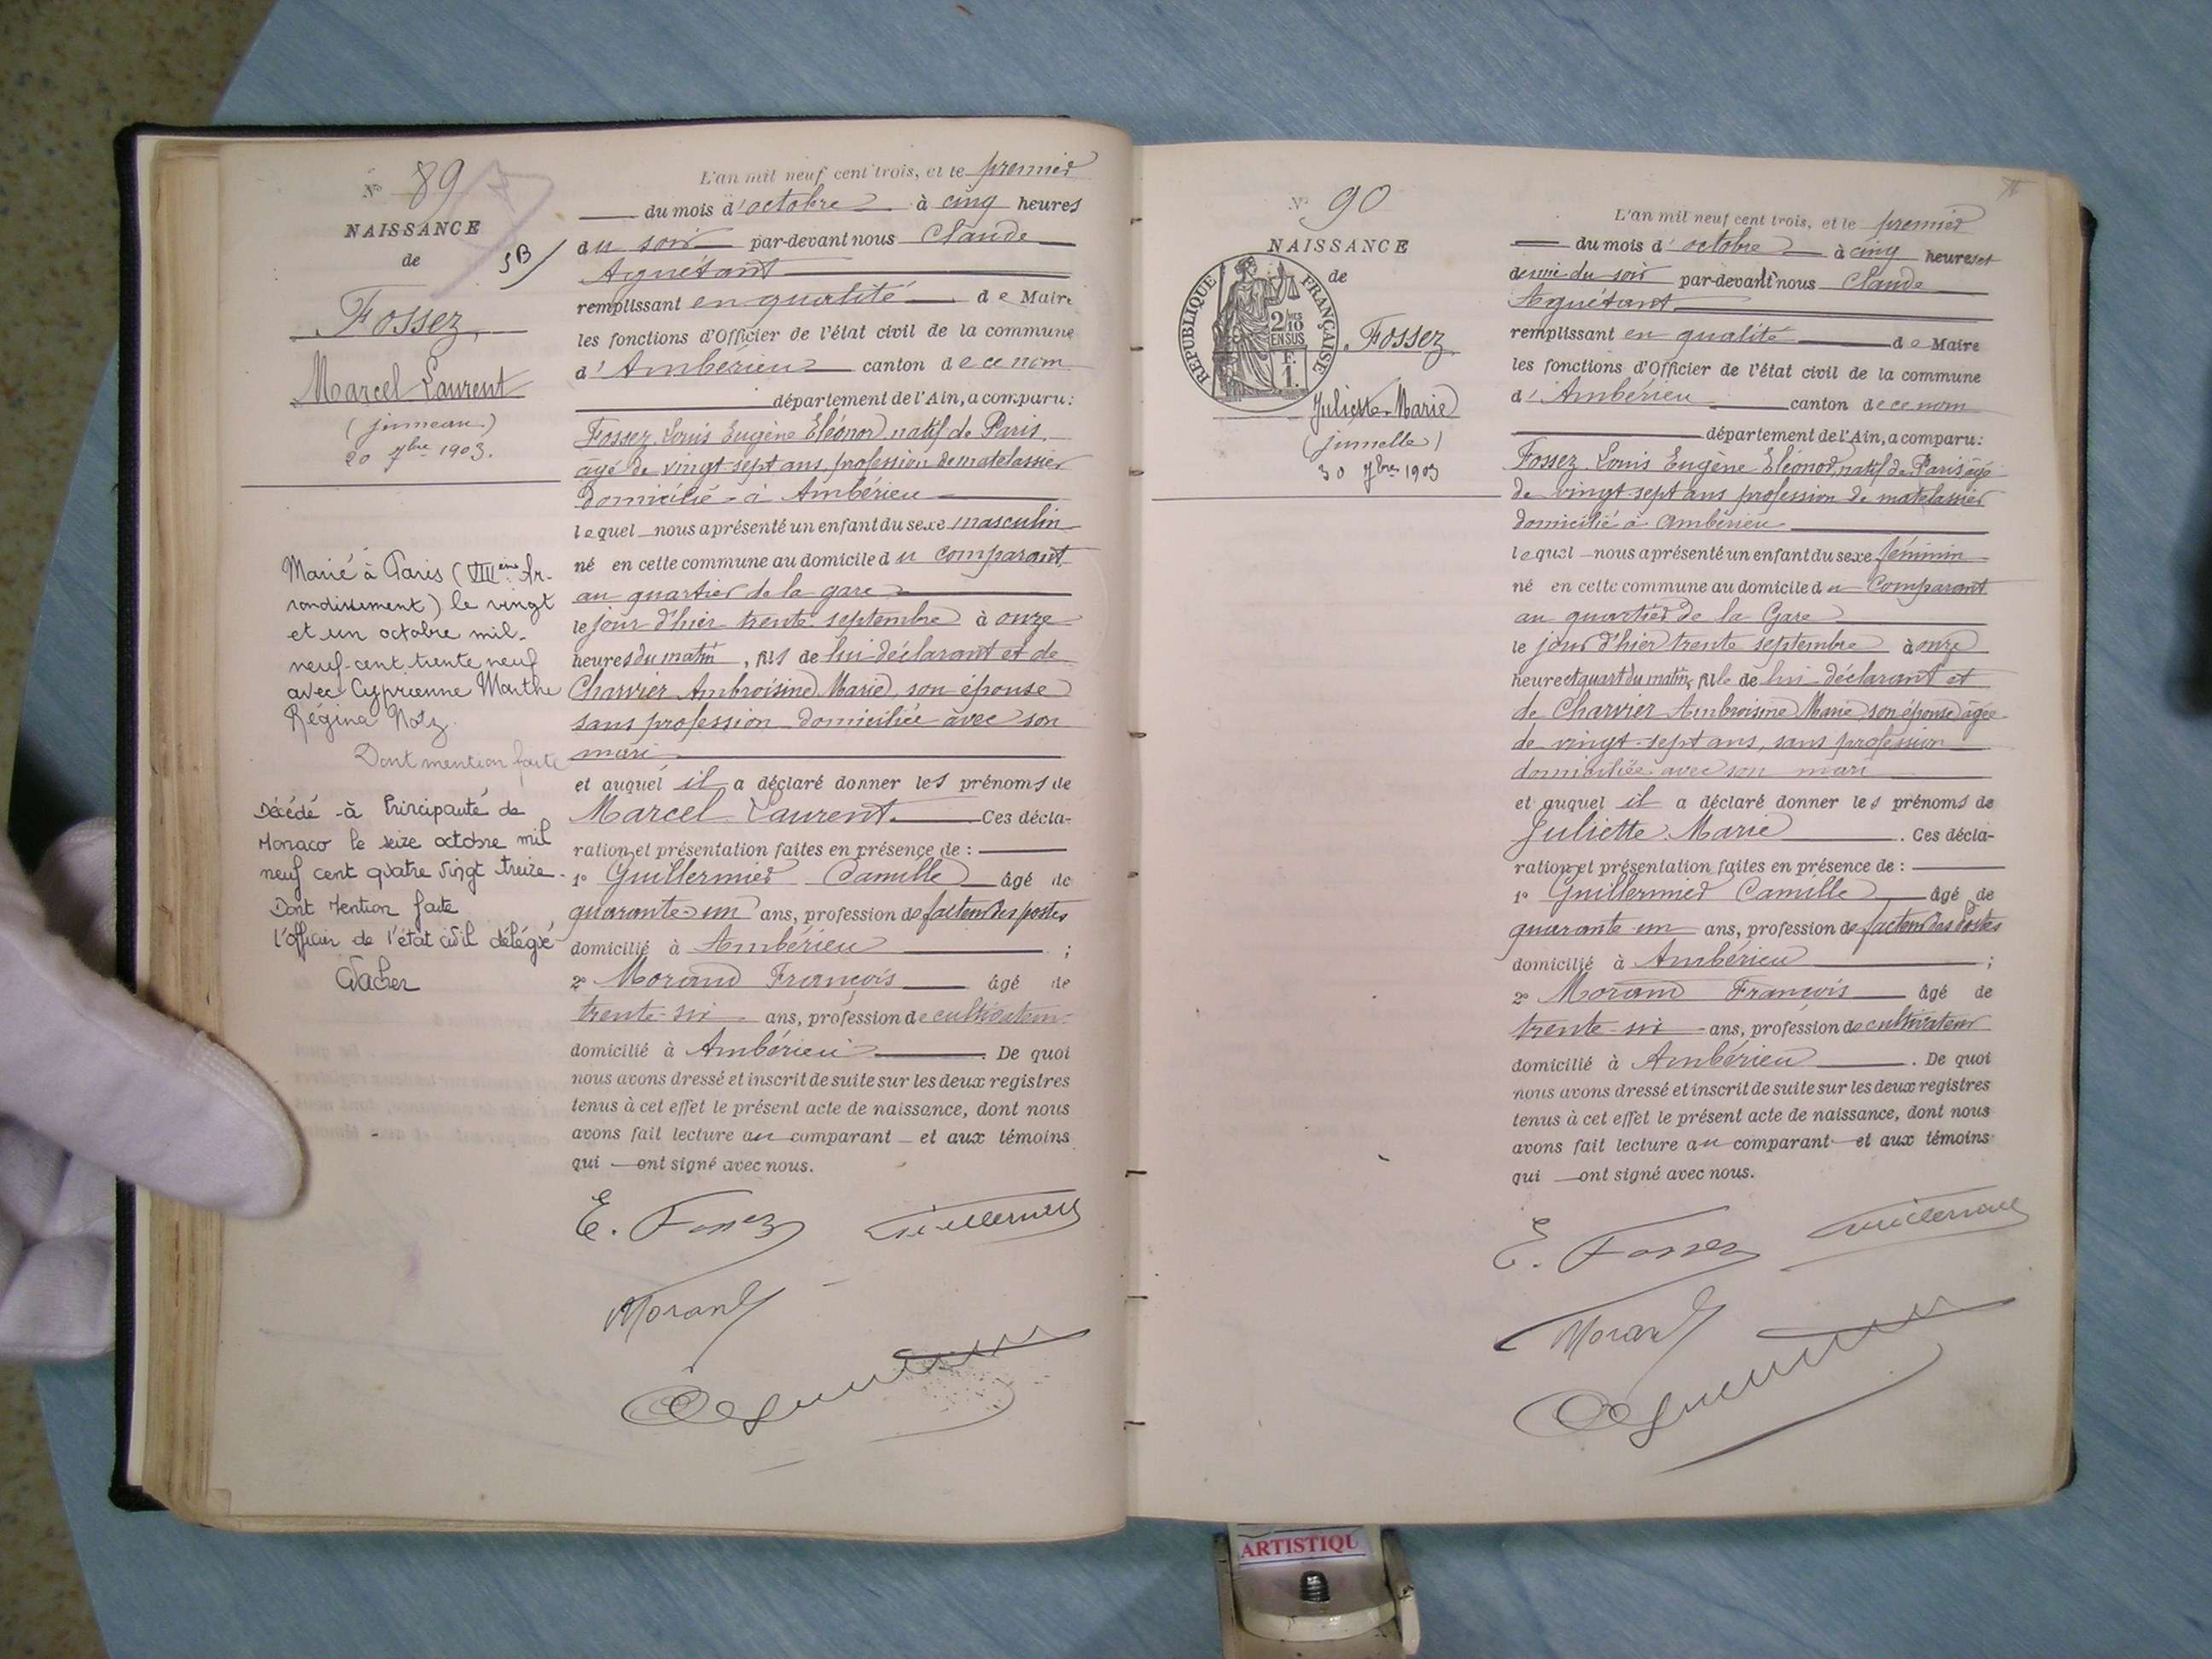 Nº 89
NAISSANCE
de
Fossez
Marcel Laurent
(jumeau)
30 7bre 1903.
Marié à Paris (VIIIème Ar-
rondissement) le vingt
et un octobre mil-
neuf-cent trente neuf
avec Cyprienne Marthe
Régina Notz.
Dont mention faite
Décédé à Principauté de
Monaco le seize octobre mil
neuf cent quatre vingt treize.
Dont mention faite
l'officier de l'état civil délégué
L'an mil neuf cent trois, et le premier
du mois d'octobre à cinq heures
du soir par-devant nous Claude
Aguétant
remplissant en qualité de Maire
les fonctions d'Officier de l'état civil de la commune
d'Ambérieu canton de ce nom
département de l'Ain, a comparu:
Fossez Louis Eugène Eléonor, natif de Paris,
âgé de vingt sept ans, profession de matelassier
domicilié à Ambérieu
lequel nous a présenté un enfant du sexe masculin
né en cette commune au domicile du comparant,
au quartier de la gare
le jour d'hier trente septembre à onze
heures du matin, fils de lui déclarant et de
Charvier Ambroisine Marie, son épouse
sans profession domiciliée avec son
mari
et auquel il a déclaré donner les prénoms de
Marcel Laurent. Ces décla-
ration et présentation faites en présence de :
1º Guillermier Camille âgé de
quarante-un ans, profession de facteur des postes
domicilié à Ambérieu ;
2º Morand François âgé de
trente-six ans, profession de cultivateur
domicilié à Ambérieu. De quoi
nous avons dressé et inscrit de suite sur les deux registres
tenus à cet effet le présent acte de naissance, dont nous
avons fait lecture au comparant et aux témoins
qui ont signé avec nous.
E. Fossez Guillermier
Morand
Nº 90
NAISSANCE
de
RÉPUBLIQUE FRANÇAISE
2/10
EN SUS
F.
1.
Fossez
Juliette Marie
(jumelle)
30 7bre 1903
L'an mil neuf cent trois, et le premier
du mois d'octobre à cinq heures et
demie du soir par-devant nous Claude
Aguétant
remplissant en qualité de Maire
les fonctions d'Officier de l'état civil de la commune
d'Ambérieu canton de ce nom
département de l'Ain, a comparu:
Fossez Louis Eugène Eléonor, natif de Paris âgé
de vingt-sept ans profession de matelassier
domicilié à Ambérieu
lequel nous a présenté un enfant du sexe féminin
né en cette commune au domicile du Comparant
au quartier de la Gare
le jour d'hier trente septembre à onze
heures et quart du matin, fille de lui déclarant et
de Charvier Ambroisine Marie, son épouse âgée
de vingt-sept ans, sans profession
domiciliée avec son mari
et auquel il a déclaré donner les prénoms de
Juliette Marie. Ces décla-
ration et présentation faites en présence de :
1º Guillermier Camille âgé de
quarante un ans, profession de facteur des Postes
domicilié à Ambérieu ;
2º Morand François âgé de
trente-six ans, profession de cultivateur
domicilié à Ambérieu. De quoi
nous avons dressé et inscrit de suite sur les deux registres
tenus à cet effet le présent acte de naissance, dont nous
avons fait lecture au comparant et aux témoins
qui ont signé avec nous.
E. Fossez Guillermier
Morand
ARTISTIQU